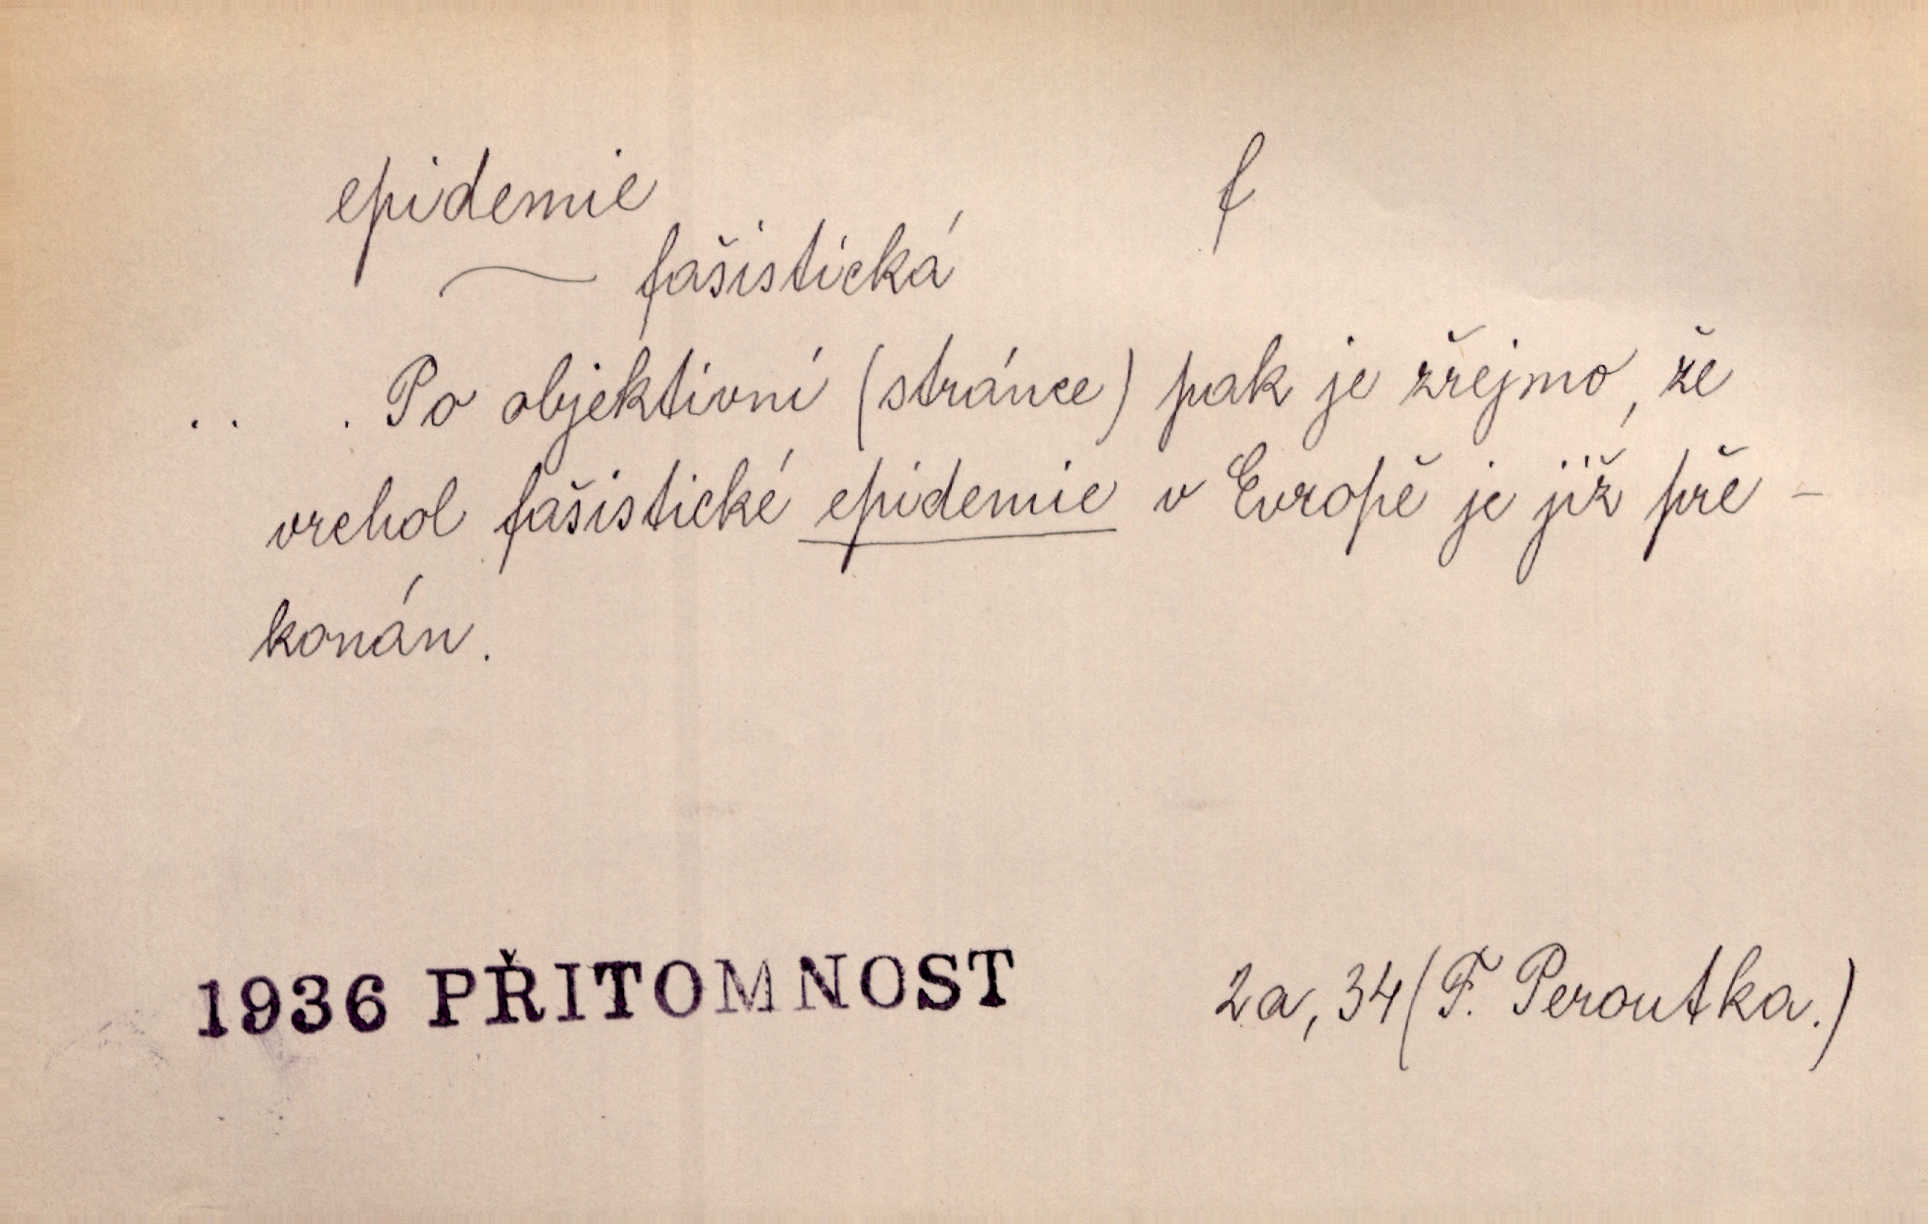 epidemie f
~ fašistická
. . . Po objektivní (stránce) pak je zřejmo, že
vrchol fašistické epidemie v Evropě je již pře-
konán.
1936 PŘITOMNOST 2a, 34 (F. Peroutka.)